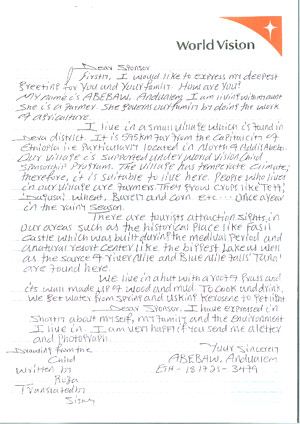 World Vision
Dear Sponsor
Firstly I would like to express my deepest
greeting for You and Your family. How are You?
My name is ABEBAW, Andualem I am living with
She is a farmer. She governs our family by doing the work
of agriculture.
I live in a small village which is found in
Dera district. It is far from the Capital city of
Ethiopia i.e particularly located in North of Addis Abeb.
Our village is supported under World Vision Child
Sponsorship Program. The village has temperate climate;
therefore, it is suitable to live here. People who live
in our village are farmers. They grow crops like Teff,
Wheat, Barell and corn etc... once a year
in the rainy season.
There are tourists attraction sights, in
our areas such as the historical place like Fasil
Castle which was built during the medical Period and
a natural resort center like the biggest lake as well
as the source of river Nile and Blue Nile falls Tana
are found here.
We live in a hut with a roof of grass and
its wall made up of wood and mud. To cook and drink,
we get water from spring and using kerosene to get light
Dear Sponsor, I have expressed in
Short about my self, my family and the environment
I live in. I am very happy if you send me a letter
and photograph.
Drawing from the
Child
Your Sincerely
ABEBAW, Andualem
Written by
ETH-181725-3479
Translated by
Sisay